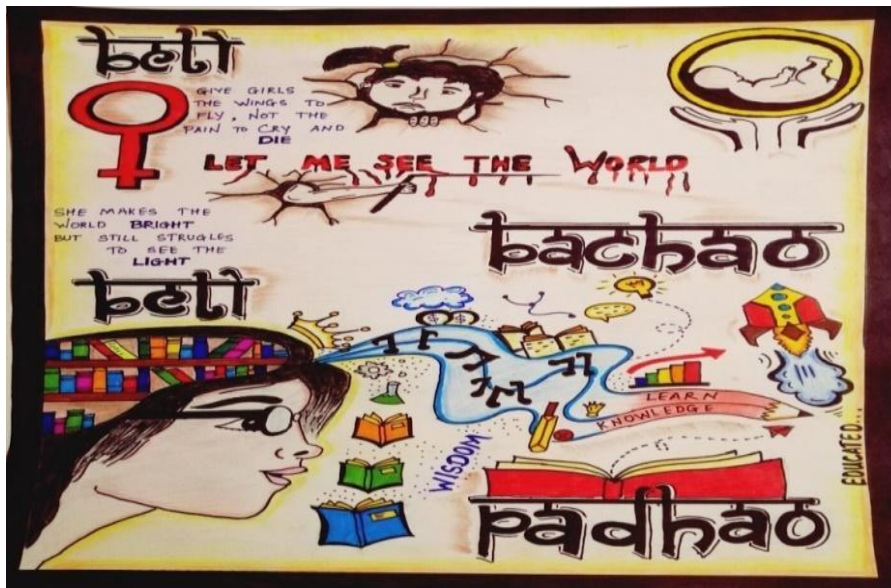 beti
GIVE GIRLS
THE WINGS TO
FLY, NOT THE
PAIN TO CRY AND
DIE
LET ME SEE THE WORLD
SHE MAKES THE
WORLD BRIGHT
BUT STILL STRUGLES
TO SEE THE
LIGHT
bachao
beti
$ $
LEARN
KNOWLEDGE
WISDOM
EDUCATED...
padhao